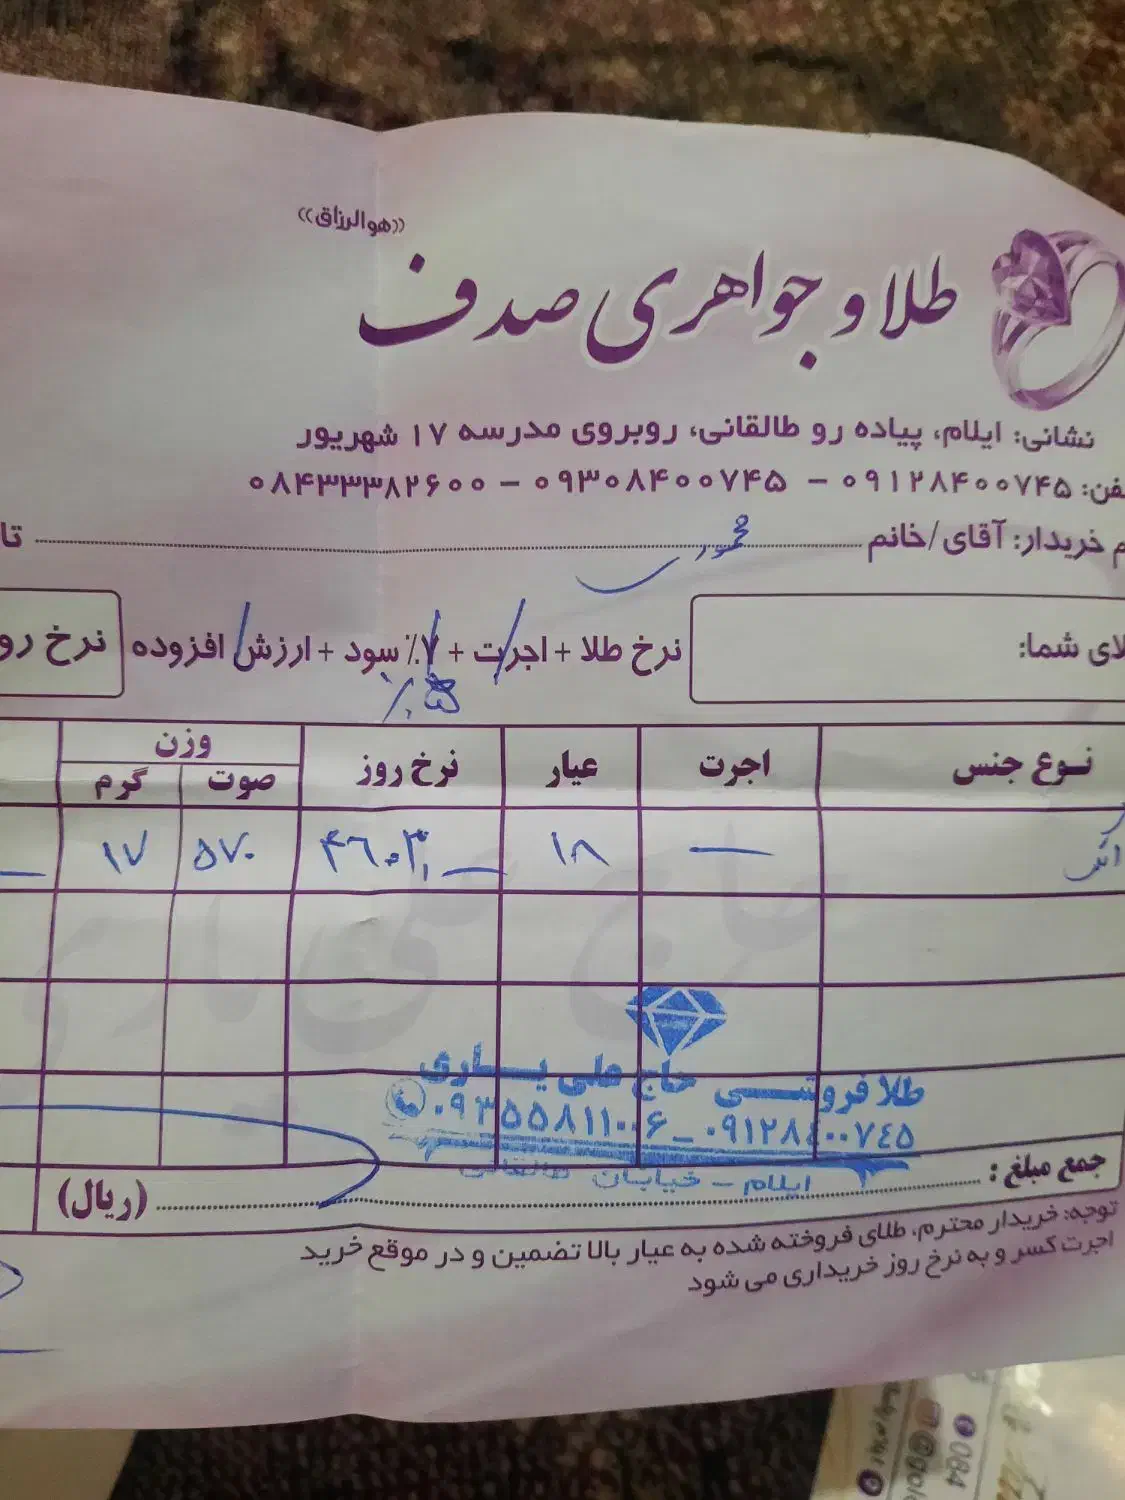 ((هوالرزاق))
طلا و جواهری صدف
نشانی: ایلام، پیاده رو طالقانی، روبروی مدرسه ۱۷ شهریور
فن: ۰۹۱۲۸۴۰۰۷۴۵ - ۰۹۳۰۸۴۰۰۷۴۵ - ۰۸۴۳۳۳۸۲۶۰۰
م خریدار: آقای/خانم
تا
لای شما:
نرخ طلا + اجرت + ۷٪ سود + ارزش افزوده
نرخ رو
٪۵
نوع جنس
اجرت
عیار
نرخ روز
وزن
صوت
گرم
—
۱۸
۵۷۰
۱۷
طلا فروشی حاج علی یاری
۰۹۱۲۸۴۰۰۷۴۵ - ۰۹۳۵۵۸۱۱۰۰۶
ایلام - خیابان طالقانی
جمع مبلغ:
(ریال)
توجه: خریدار محترم، طلای فروخته شده به عیار بالا تضمین و در موقع خرید
اجرت کسر و به نرخ روز خریداری می شود
084